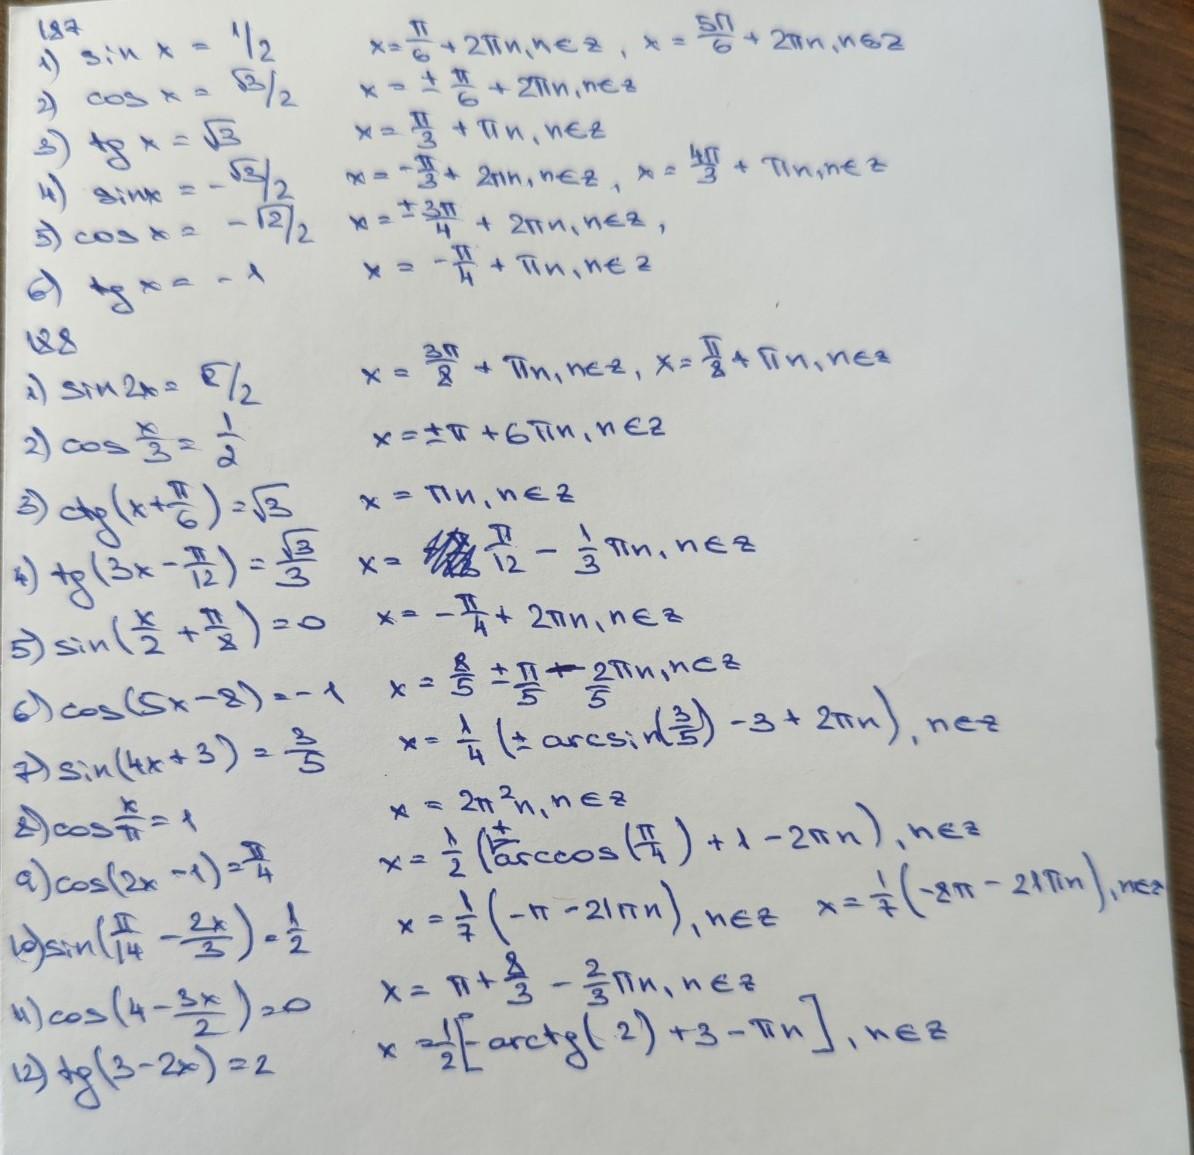 187
1) sin x = 1/2 x = π/6 + 2πn, n∈z, x = 5π/6 + 2πn, n∈z
2) cos x = √3/2 x = ± π/6 + 2πn, n∈z
3) tg x = √3 x = π/3 + πn, n∈z
4) sinx = -√3/2 x = -π/3 + 2πn, n∈z, x = 4π/3 + πn, n∈z
5) cos x = -√2/2 x = ± 3π/4 + 2πn, n∈z,
6) tg x = -1 x = -π/4 + πn, n∈z
188
1) sin2x = √2/2 x = 3π/8 + πn, n∈z, x = π/8 + πn, n∈z
2) cos x/3 = 1/2 x = ±π + 6πn, n∈z
3) ctg(x+π/6) = √3 x = πn, n∈z
4) tg(3x - π/12) = √3/3 x = π/12 - 1/3 πn, n∈z
5) sin(x/2 + π/8) = 0 x = -π/4 + 2πn, n∈z
6) cos(5x-8) = -1 x = 8/5 ± π/5 - 2/5 πn, n∈z
7) sin(4x+3) = 3/5 x = 1/4 (± arcsin(3/5) - 3 + 2πn), n∈z
8) cos x/π = 1 x = 2π²n, n∈z
9) cos(2x-1) = π/4 x = 1/2 (± arccos(π/4) + 1 - 2πn), n∈z
10) sin(π/14 - 2x/3) = 1/2 x = 1/7 (-π - 21πn), n∈z x = 1/7 (-8π - 21πn), n∈z
11) cos(4 - 3x/2) = 0 x = π + 8/3 - 2/3 πn, n∈z
12) tg(3-2x) = 2 x = 1/2 [- arctg(2) + 3 - πn], n∈z